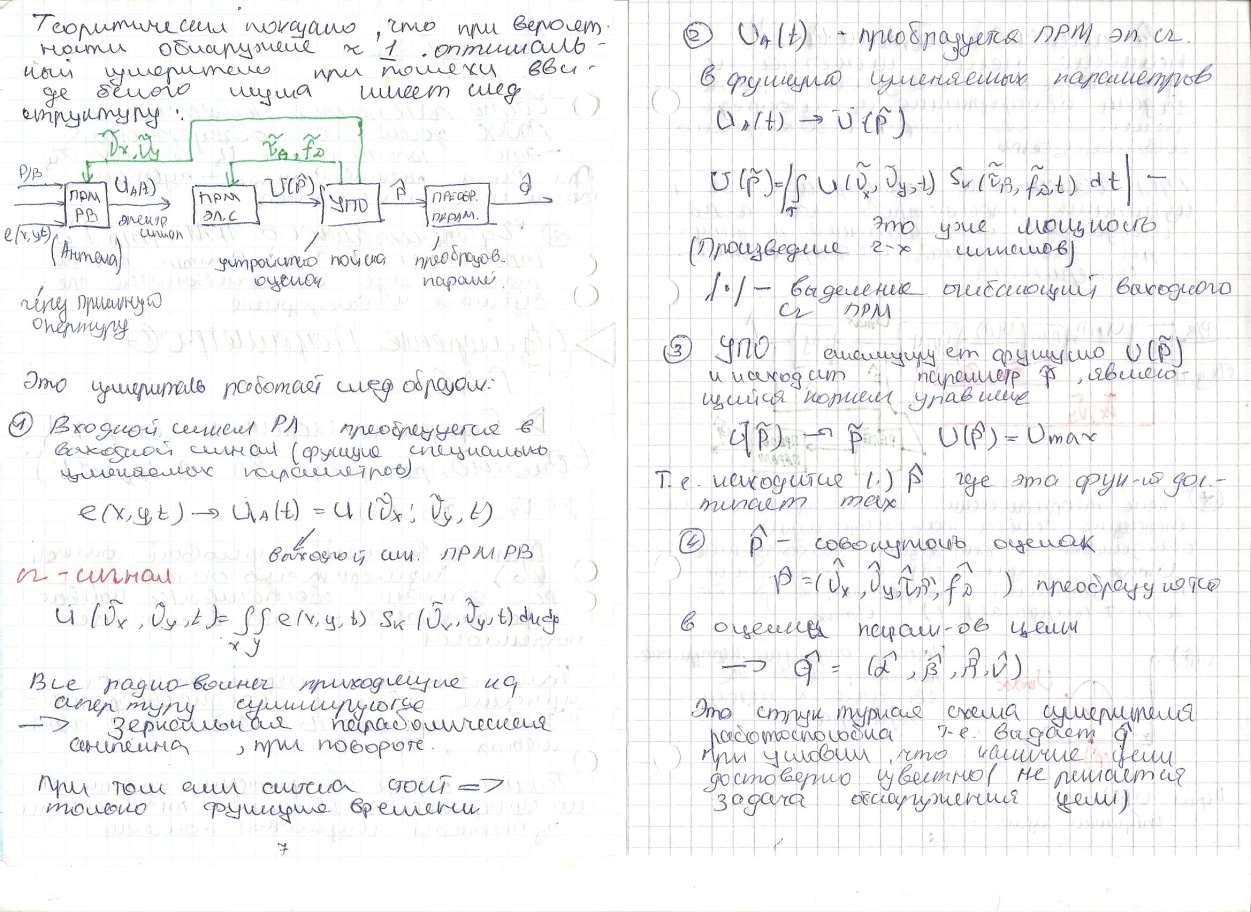 Теоритически показано, что при вероят.
ности обнаружение ≈ 1 оптималь-
ный измеритель при помехи вви-
де белого шума имеет след
структуру:
ṽx, ṽy τ̃R, f̃D
Р/В
ПРМ РВ
UA(t)
электр сигнал
ПРМ ЭЛ.С
U(p̃)
УПО
p̂
ПРЕОБР. ПАРАМ.
q̂
e(x,y,t)
(Антена)
устройство поиска оценок
преобразов. парам.
через приемную
апертуру
Это измеритель работает след образом:
① Входной сигнал РЛ преобразуется в
выходной сигнал (функцию специально
изменяемых параметров)
e(x,y,t) → U̇A(t) = U̇(ṽx; ṽy, t)
выходной сиг. ПРМ РВ
сг - сигнал
U̇(ṽx, ṽy, t) = ∫∫ e(x,y,t) Sк(ṽx, ṽy, t) dxdy
x y
Все радио-волны приходящие на
апертуру суммируются
→ Зеркальная параболическая
антенна, при повороте.
При том сам антена стоит ⇒
только функцие времени
7
② UA(t) - преобразуется ПРМ эл. сг.
в функцию изменяемых параметров
UA(t) → U(p̃)
U(p̃) = |∫ U(ṽx, ṽy, t) Sк(τ̃R, f̃D, t) dt| —
T
это уже мощность
(Произведние 2-х сигналов)
|·| — выделение огибающий выходного
сг ПРМ
③ УПО анализирует функцию U(p̃)
и находит параметр p̂, являю-
щийся корнем уравнение
U(p̃) → p̃ U(p̂) = Umax
Т.е. находится (.) p̂ где эта функ-ия дос-
тигает max
④ p̂ - совокупность оценак
p̂ = (v̂x, v̂y, τ̂R, f̂D) преобразуются
в оценки парам-ов цели
→ q̂ = (α̂, β̂, R̂, v̂)
Это структурная схема измерителя
работоспособна т.е. выдает q̂
при условии, что наличие цели
достоверно известно (не решается
задача обнаружения цели)